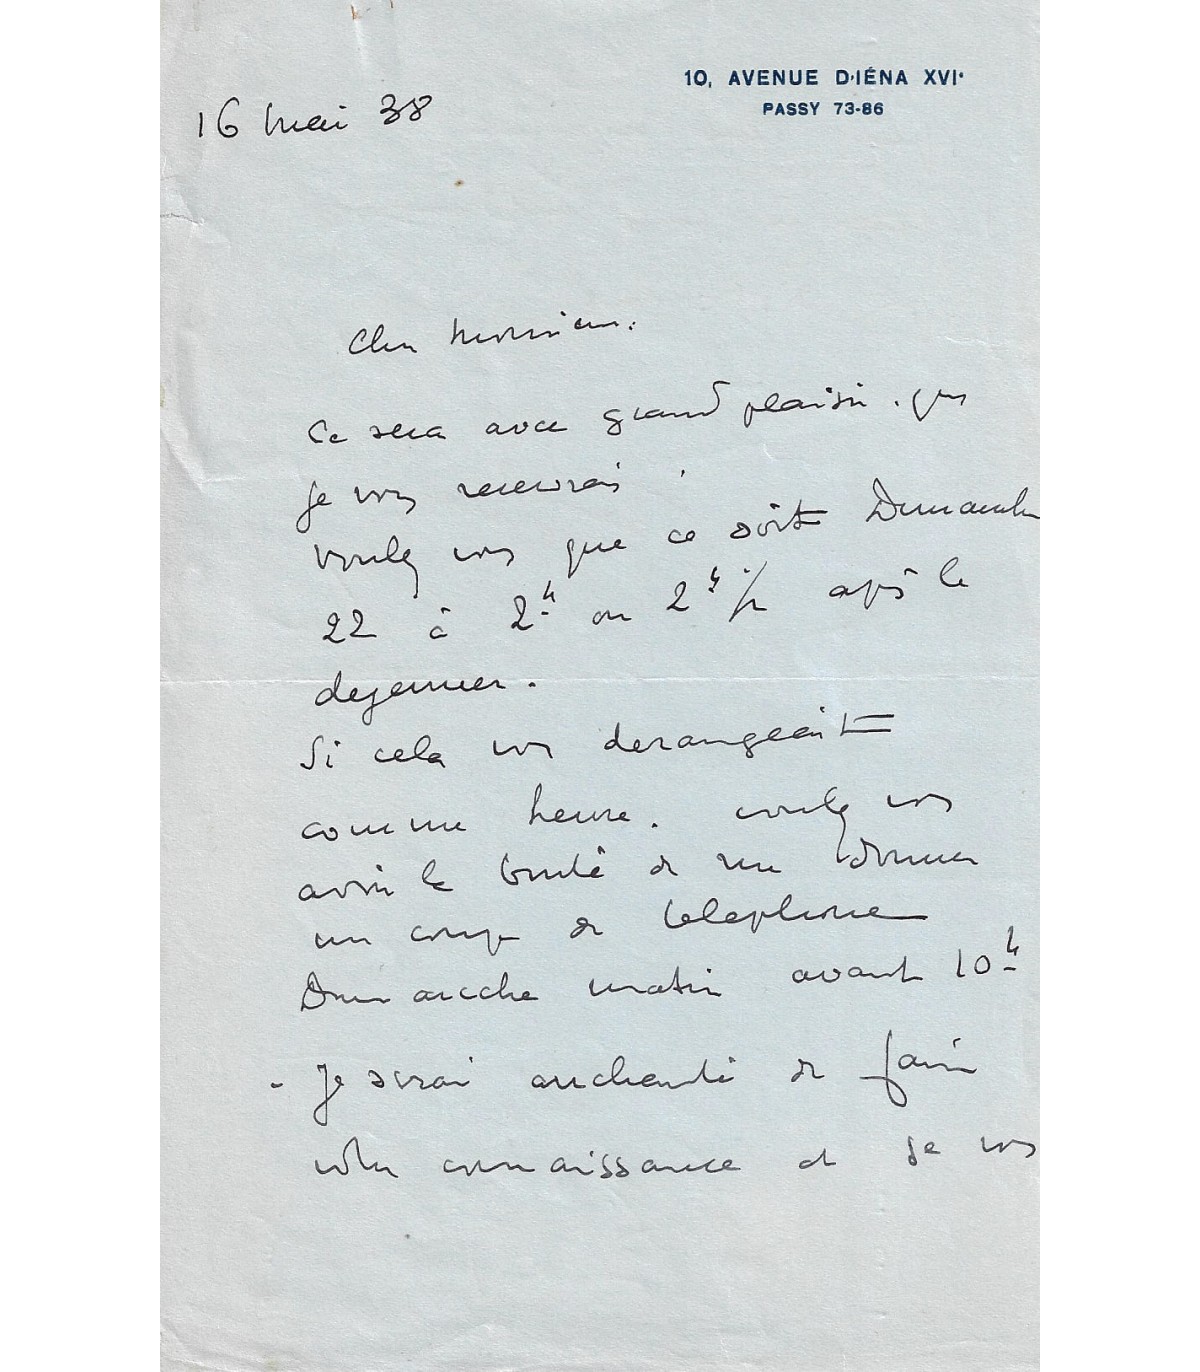 10, AVENUE D'IÉNA XVIe
PASSY 73-86
16 mai 38
Cher Monsieur.
Ce sera avec grand plaisir. que
je vous recevrais
voulez vous que ce soit Dimanche
22 à 2h ou 2h 1/2 après le
dejeuner.
Si cela vous derangeait
comme heure. voulez vous
avoir la bonté de me donner
un coup de telephone
Dimanche matin avant 10h
- Je serai enchanté de faire
votre connaissance et je vous